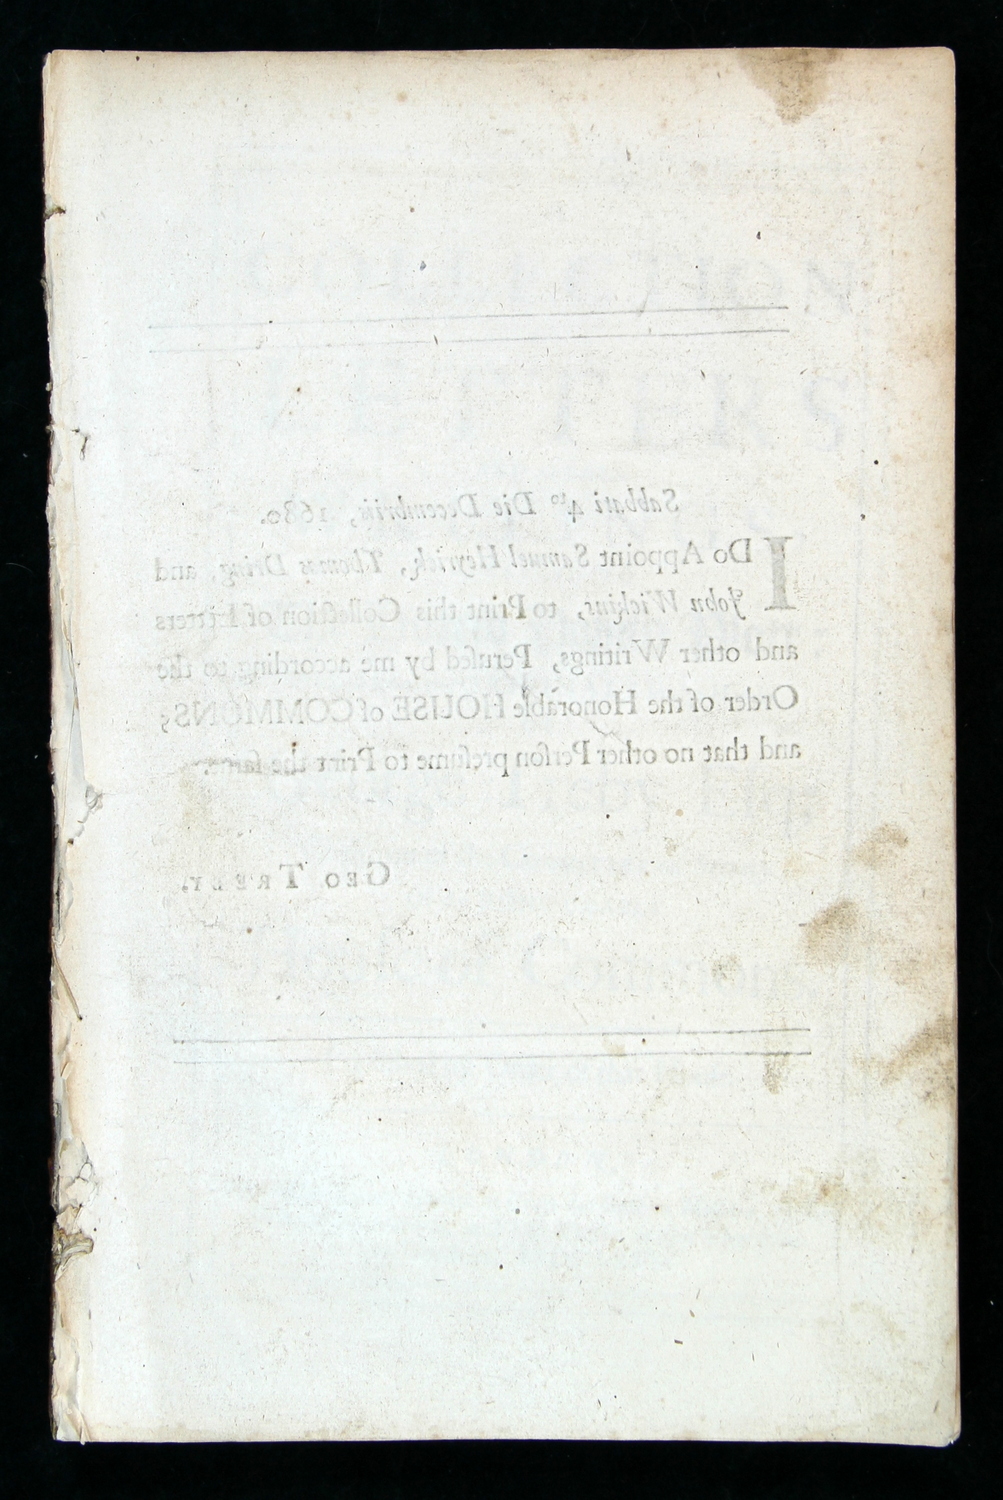 Sabbati 4to Die Decembris, 1680.
I Do Appoint Samuel Heyrick, Thomas Dring, and
John Wickins, to Print this Collection of Letters
and other Writings, Peruſed by me according to the
Order of the Honorable HOUSE of COMMONS;
and that no other Perſon preſume to Print the ſame.
GEO TREBY.